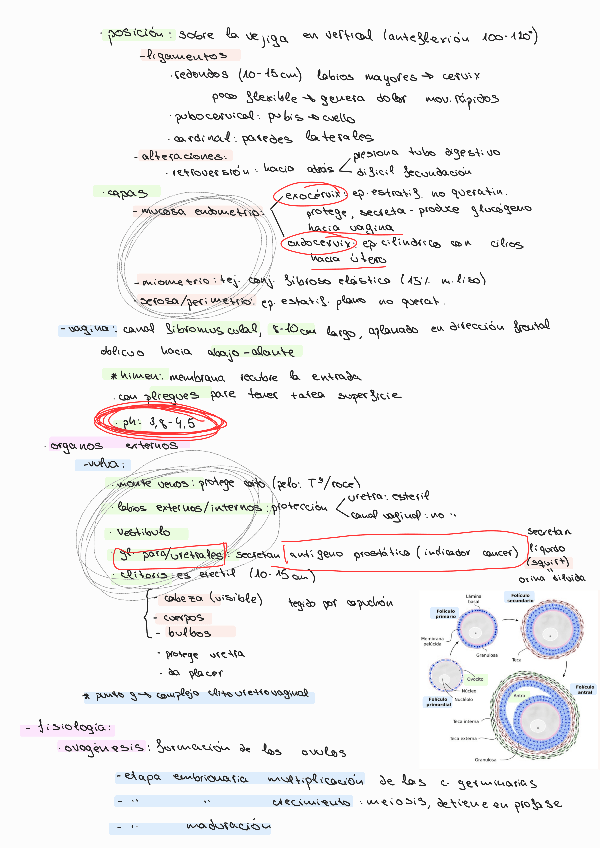 · posición: sobre la vejiga en vertical (anteflexión 100-120°)
- ligamentos
· redondos (10-15cm) labios mayores → cervix
poco flexible → genera dolor mov. rápidos
· pubocervical: pubis → cuello
· cardinal: paredes laterales
- alteraciones:
· retroversión: hacia atrás
presiona tubo digestivo
dificil fecundación
· capas
- mucosa endometrio:
exocérvix: ep. estratif. no queratin.
protege, secreta - produce glucógeno
hacia vagina
endocervix: ep cilíndrico con cilios
hacia útero
- miometrio: tej. conj. fibroso elástico (15% m. liso)
- serosa/perimetrio: ep. estatif. plano no querat.
- vagina: canal fibromusculal, 8-10cm largo, aplanado en dirección frontal
oblicuo hacia abajo-alante
* himen: membrana recubre la entrada
· con pliegues para tener tarea superficie
· ph: 3,8-4,5
· organos externos
- vulva:
· monte venus: protege coito (pelo: Tª/roce)
· labios externos/internos: protección
uretra: esteril
canal vaginal: no "
· vestibulo
· gl para/uretrales: secretan antígeno prostático (indicador cancer)
secretan
líquido
(squirt)
"
orina diluida
· clitoris: es erectil (10-15cm)
- cabeza (visible) tegido por capuchón
- cuerpos
- bulbos
· protege uretra
· da placer
* punto g → complejo clitouretrovaginal
Lámina basal
Folículo primario
Folículo secundario
Membrana pelúcida
Granulosa
Teca
Ovocito
Núcleo
Nucléolo
Folículo primordial
Antro
Folículo antral
Teca interna
Teca externa
Granulosa
- fisiología:
· ovogénesis: formación de los ovulos
- etapa embrionaria multiplicación de las c. germinarias
- " " crecimiento: meiosis, detiene en profase
- " maduración